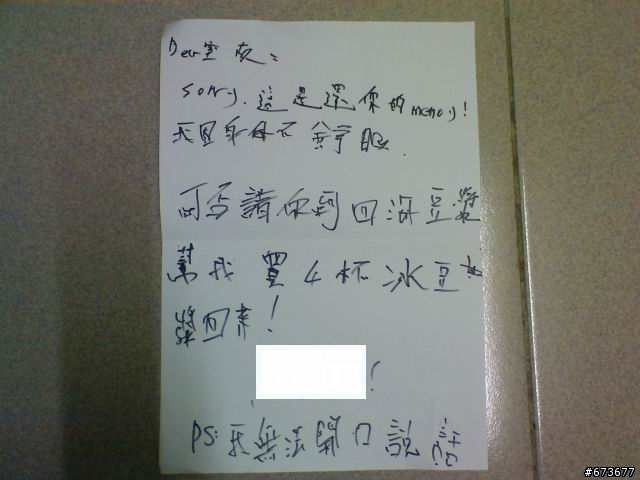 Dear室友:
sorry.這是還你的memory!
天因身体不舒服.
可否請你到四海豆漿
幫我買4杯冰豆
漿回來!
!
PS:我無法開口說話
#673677